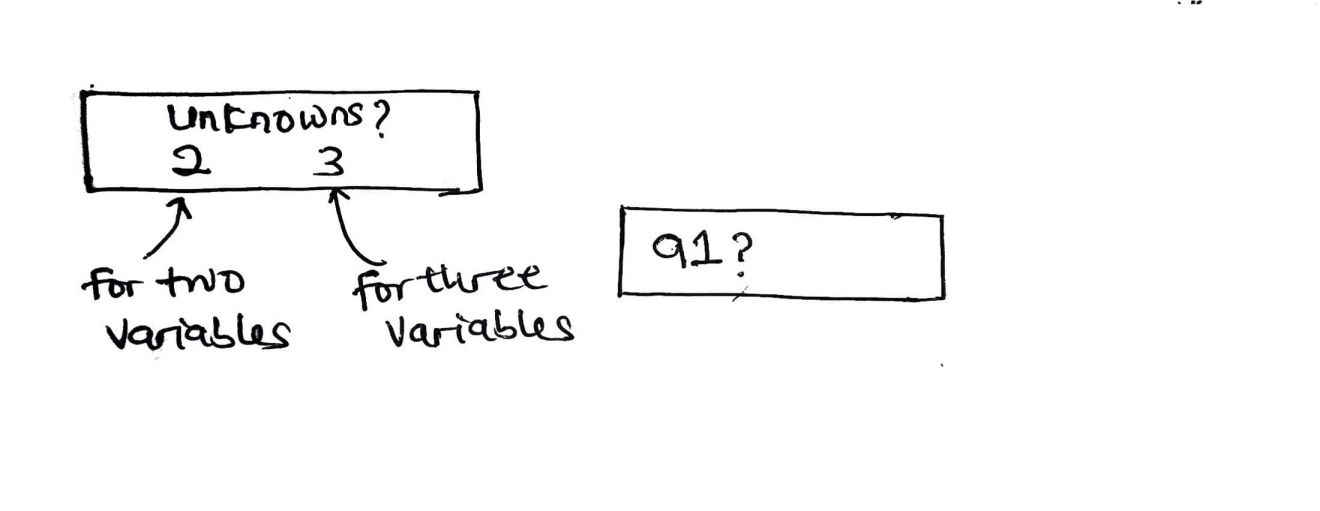 Unknowns?
2 3
for two
variables
for three
variables
a1?